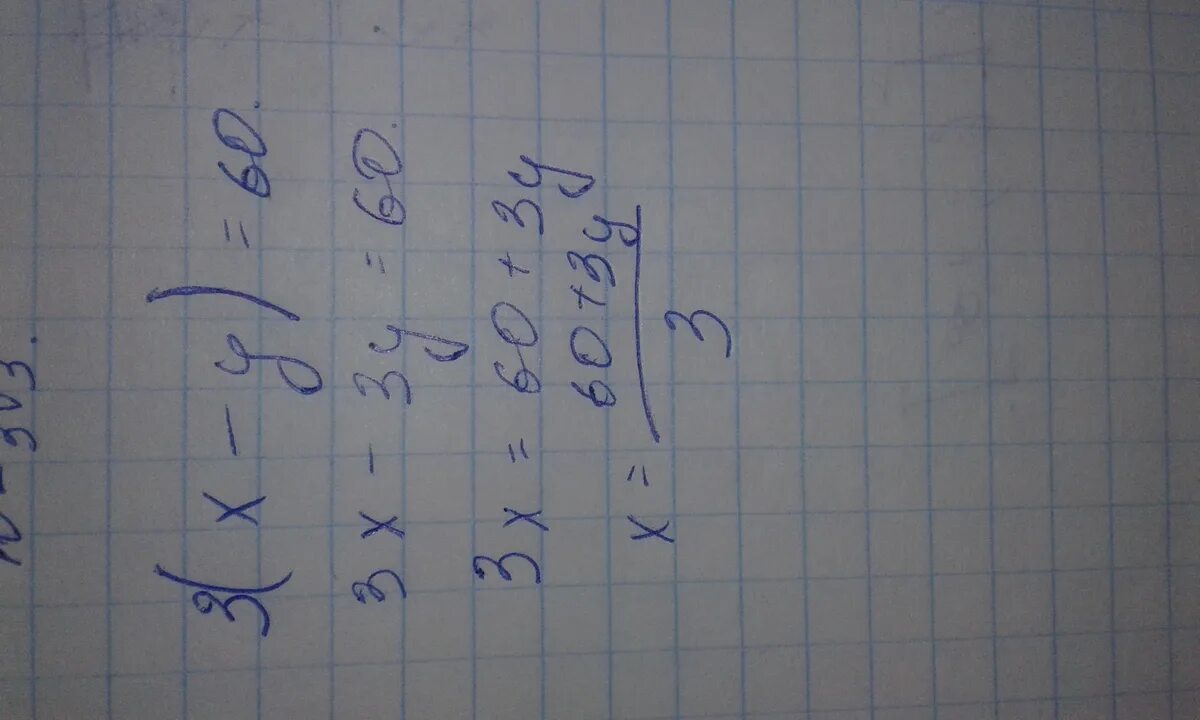 3(x - y) = 60.
3x - 3y = 60.
3x = 60 + 3y
x = \frac{60 + 3y}{3}